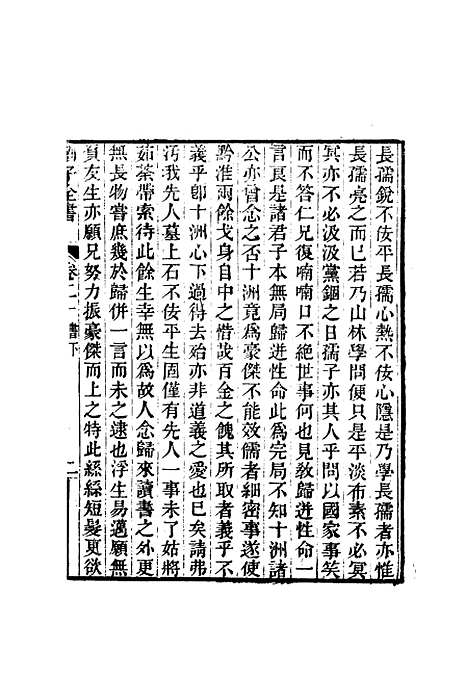 長孺銳不佞平長孺心熱不佞心隱是乃學長孺者亦惟
長孺亮之而已若乃山林學問便只是平淡布素不必冥
冥亦不必汲汲黨錮之日孺子亦其人乎問以國家事笑
而不答仁兄復喃喃口不絕世事何也見敎歸迸性命一
言良是諸君子本無局歸迸性命此爲完局不知十洲諸
公亦曾念之否十洲竟爲豪傑不能效儒者細密事遂使
黔淮兩餘戈身自中之惜哉百金之餽其所取者義乎不
義乎卽十洲心下過得去始亦非道義之愛也已矣請弗
汚我先人墓上石不佞平生固僅有先人一事未了姑將
茹荼帶索待此餘生幸無以爲故人念歸來讀書之外更
無長物嘗庶幾於歸併一言而未之逮也浮生易邁願無
負友生亦願兄努力振豪傑而上之特此絲絲短髮更欲
子全書
卷二十
書下
二